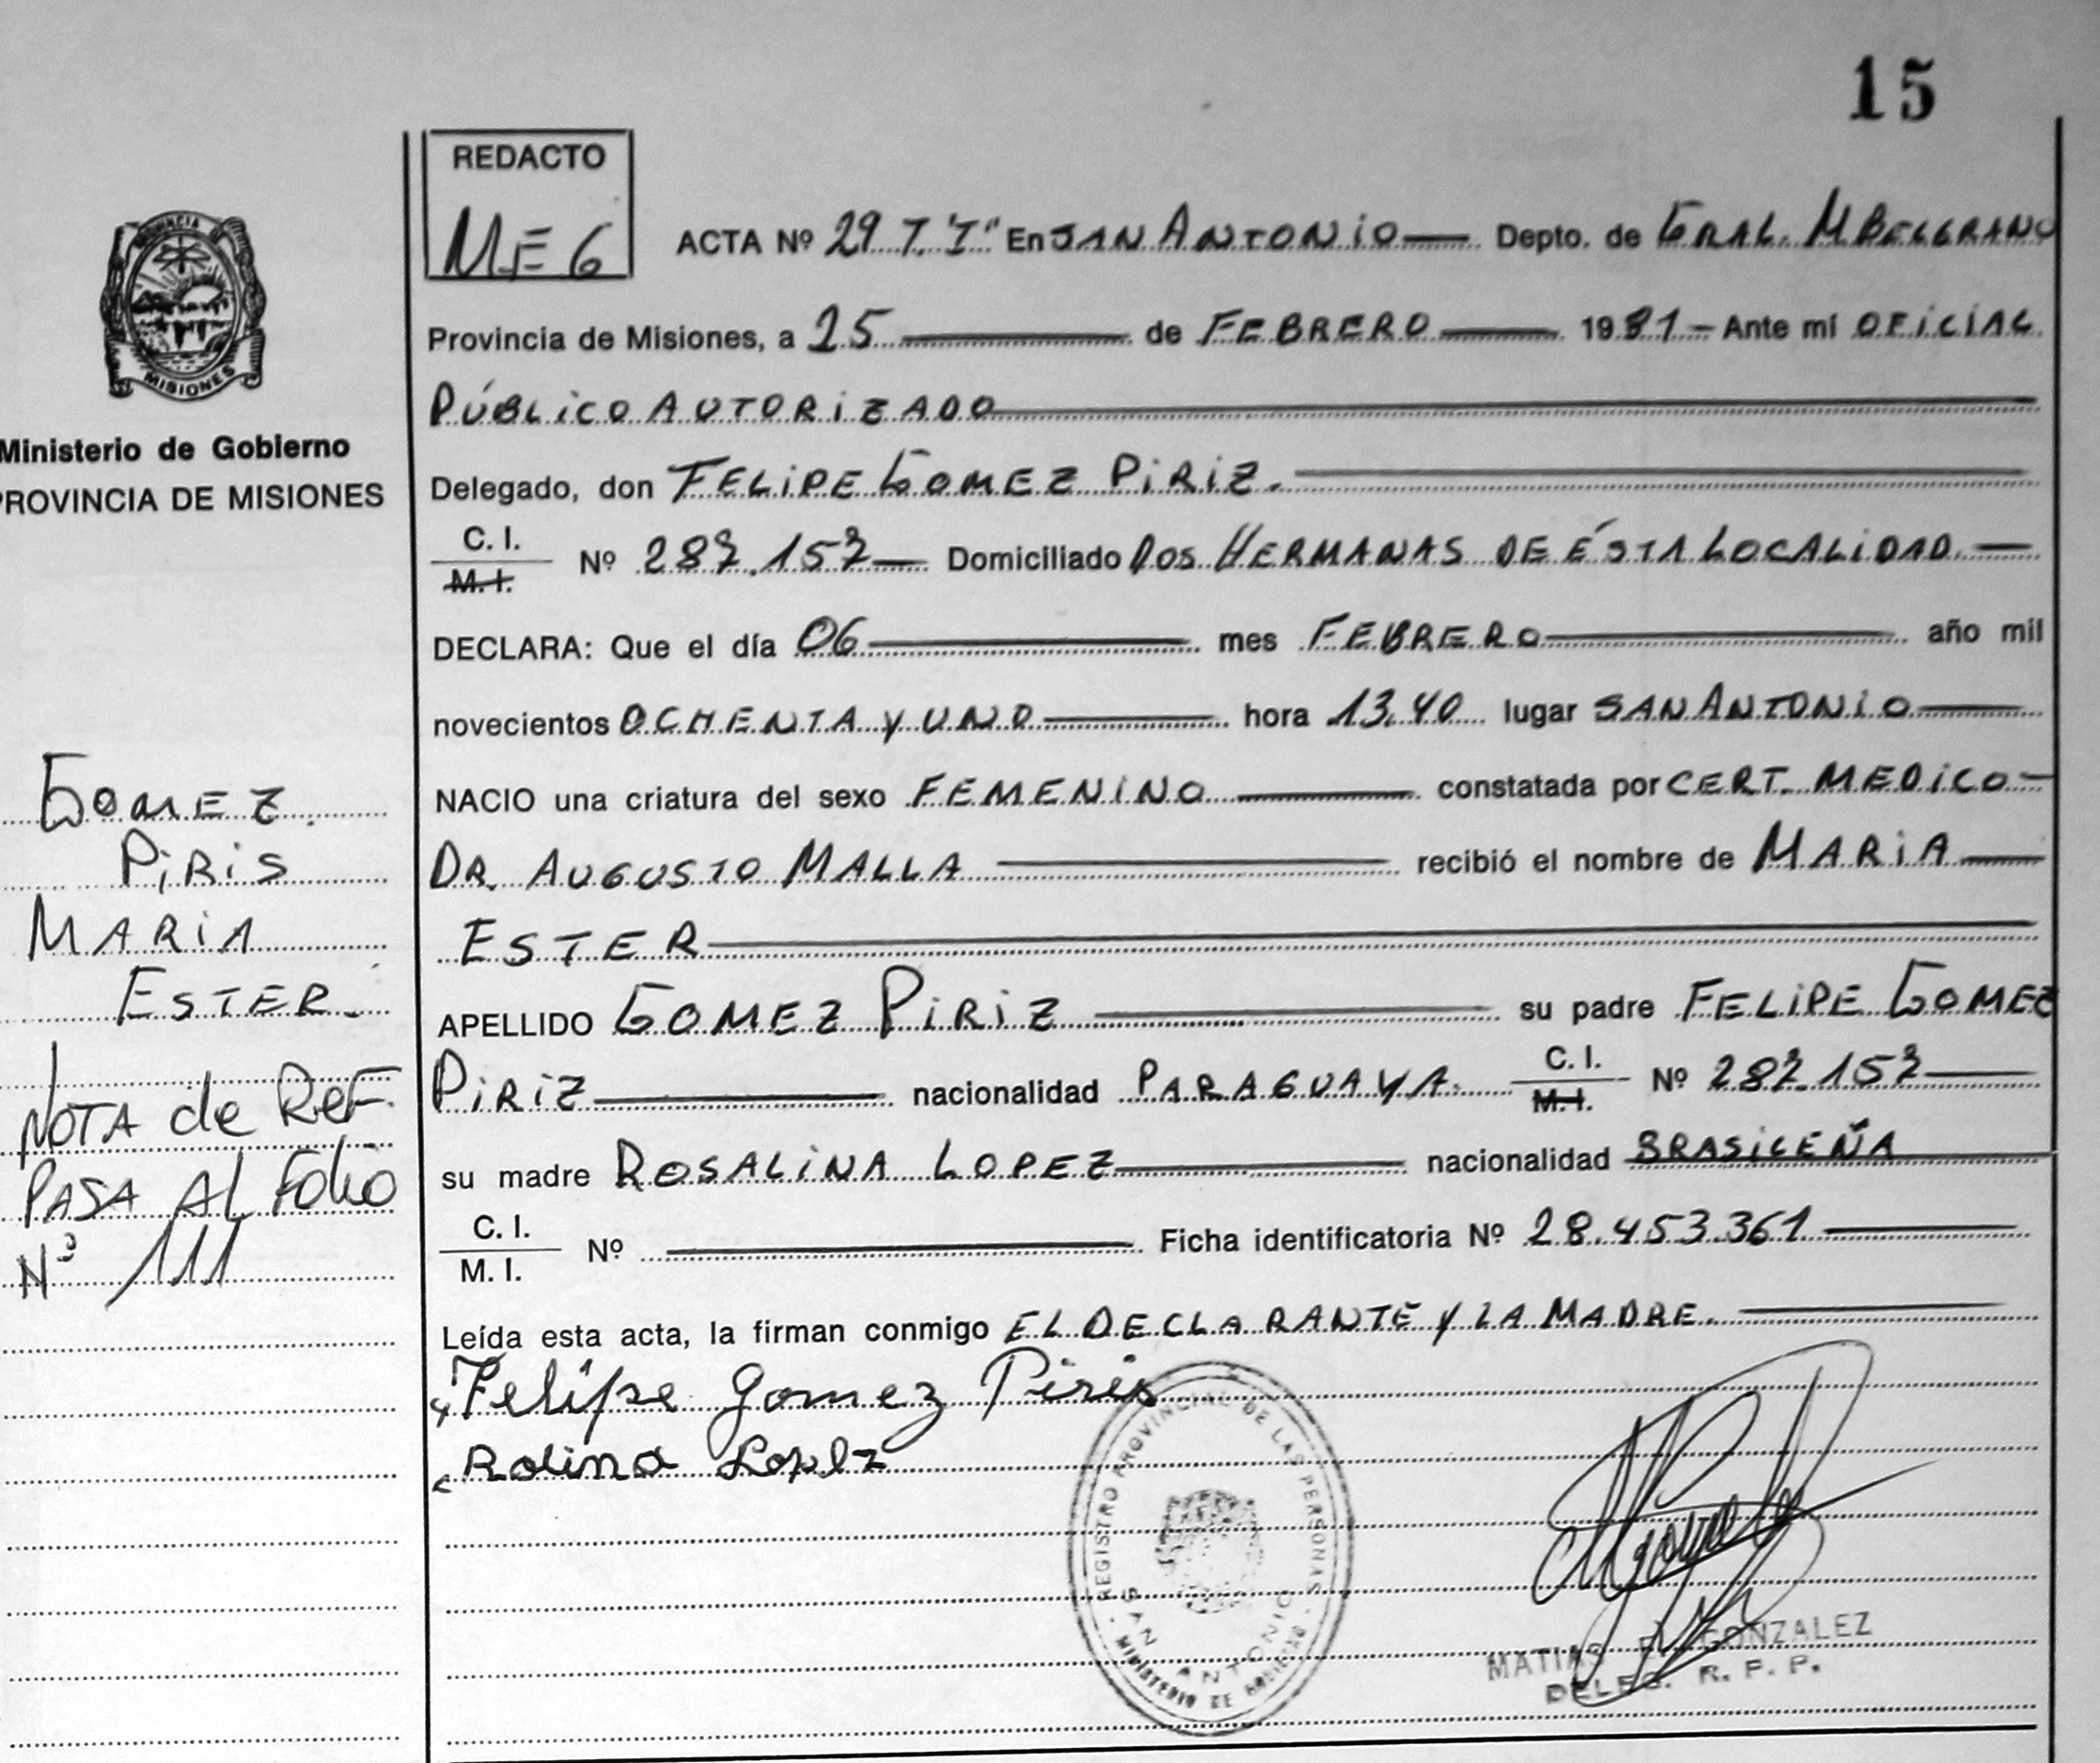 15
REDACTO
MEG
ACTA Nº 29 T. I" En SAN ANTONIO Depto. de GRAL. M BELGRANO
Provincia de Misiones, a 25 de FEBRERO 1981 Ante mí OFICIAL
PÚBLICO AUTORIZADO
Delegado, don FELIPE GOMEZ PIRIZ.
C. I.
M. I.
Nº 287.157 Domiciliado DOS HERMANAS DE ÉSTA LOCALIDAD.
DECLARA: Que el día 06 mes FEBRERO año mil
novecientos OCHENTA Y UNO hora 13,40 lugar SAN ANTONIO
NACIO una criatura del sexo FEMENINO constatada por CERT. MEDICO
DR. AUGUSTO MALLA recibió el nombre de MARIA
ESTER
APELLIDO GOMEZ PIRIZ su padre FELIPE GOMEZ
PIRIZ nacionalidad PARAGUAYA. C. I. M. I. Nº 287.157
su madre ROSALINA LOPEZ nacionalidad BRASILEÑA
C. I.
M. I.
Nº Ficha identificatoria Nº 28.453.361
Leída esta acta, la firman conmigo EL DECLARANTE Y LA MADRE.
Felipe Gomez Piris
Rolina Lopez
REGISTRO PROVINCIAL DE LAS PERSONAS
SAN ANTONIO
MINISTERIO DE GOBIERNO
MATIAS GONZALEZ
DELEG. R. P. P.
PROVINCIA
MISIONES
Ministerio de Gobierno
PROVINCIA DE MISIONES
GOMEZ
PIRIS
MARIA
ESTER
NOTA de REF.
PASA AL FOLIO
Nº 111